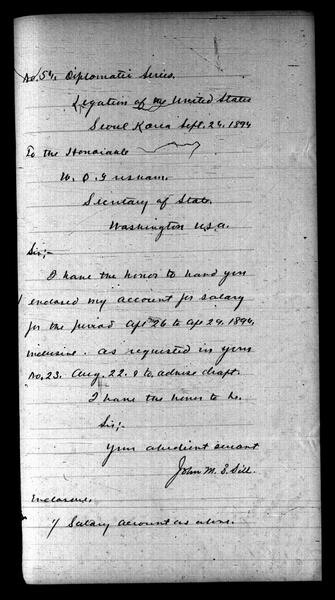 No. 54, Diplomatic Series.
Legation of the United States
Seoul Korea Sept. 24, 1894
To the Honorable
W. Q. Gresham.
Secretary of State.
Washington U.S.A.
Sir;-
I have the honor to hand you
enclosed my account for salary
for the period Apr 26 to Apr 29, 1894,
inclusive. as requested in your
No. 23. Aug. 22. & to advise draft.
I have the honor to be.
Sir;-
Your obedient servant
John M. B. Sill.
Enclosure.
1/ Salary account as above.